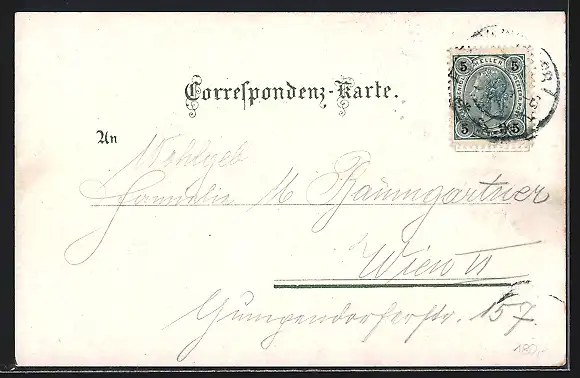 5 HELLER 5
5 5
Correspondenz-Karte.
An
Wohlgeb
Familie M Baumgartner
Wien VI
Gumpendorferstr. 157